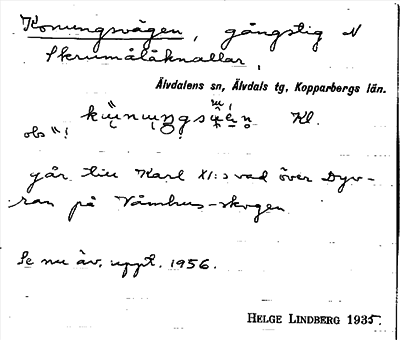 Konungsvägen, gångstig N
Skrumålåknallar,
Älvdalens sn, Älvdals tg, Kopparbergs län.
Kl.
obs "!
går till Karl XI:s vad över Dyv-
ran på Våmhus-skogen.
Se nu äv. uppt. 1956.
HELGE LINDBERG 1935.